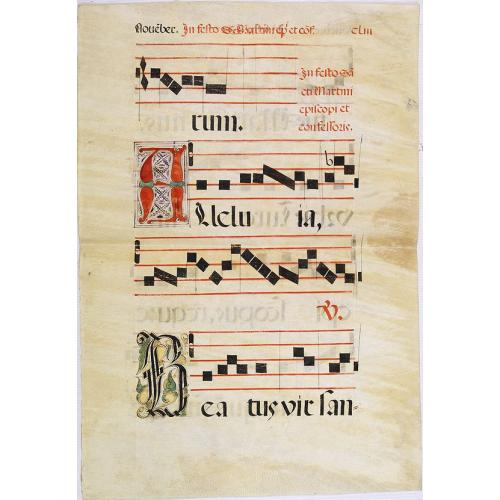 Nouẽber. In festo S. Martini ep̃i et cõf. clııı
In festo Sã
cti Martini
episcopi et
confessoris.
rum.
Allelu ia,
℣.
Bea tus vir san-